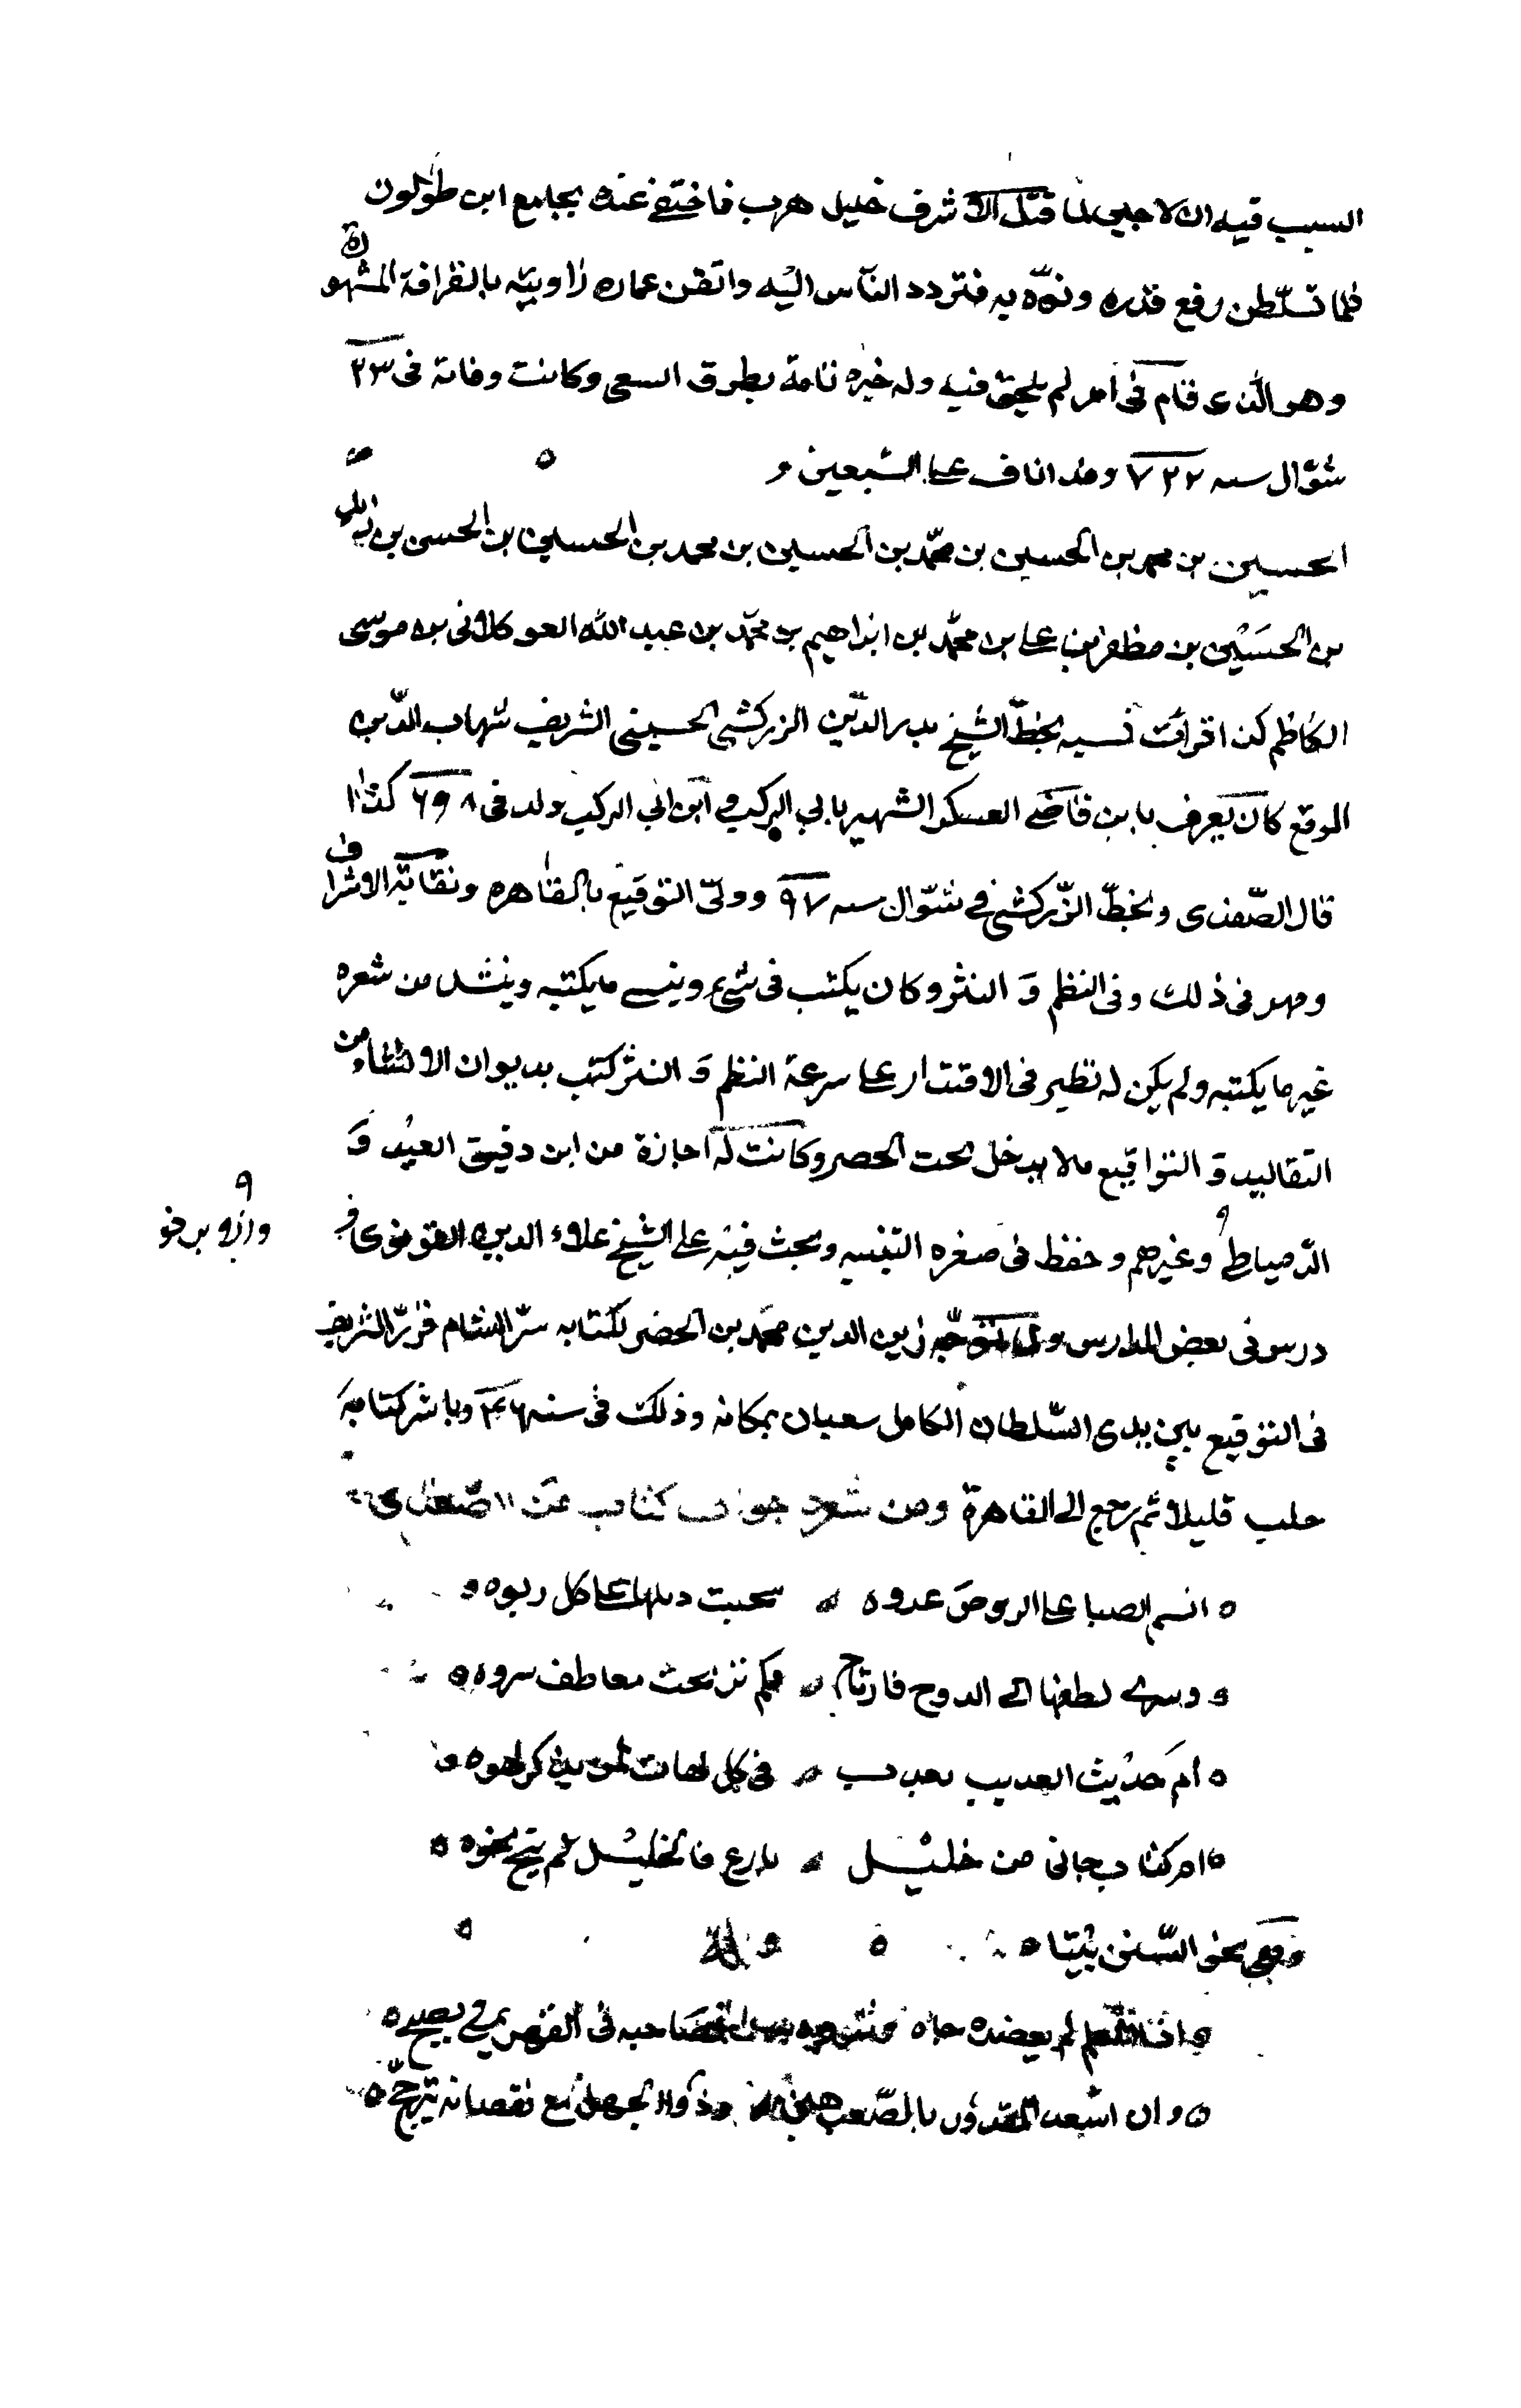 السبب فيه ان لاجين لما قتل الاشرف خليل هرب فاختفى عنده بجامع ابن طولون
فلما تسلطن رفع قدره ونوّه به فتردد النّاس اليه واتقن عماره زاويته بالقرافة المشهورة
وهو الذى قام فى امر لم يلحق فيه وله خبره تامة بطرق السعى وكانت وفاته فى ٢٣
شوّال سنه ٧٢٢ وقد اناف على السّبعين
الحسين بن محمد بن الحسين بن محمّد بن الحسين بن محمد بن الحسين بن الحسن بن زيد
بن الحسين بن مظفر بن على بن محمّد بن ابراهيم بن محمّد بن عبيد الله العوكلانى بن موسى
الكاظم كذا قرأت نسبه بخطّ الشيخ بدر الدّين الزركشى الحسينى الشريف شهاب الدّين
الموقع كان يعرف بابن قاضى العسكر الشهير بابى الركب وابن ابى الركب ولد فى ٦٩٨ كذا
قال الصّفدى وبخطّ الزّركشى فى شوّال سنه ٩٧ وولى التوقيع بالقاهره ونقابة الاشراف
ومهر فى ذلك وفى النظم و النثر وكان يكتب فى شىء وينسى ما يكتبه وينشد من شعره
غير ما يكتبه ولم يكن له نظير فى الاقتدار على سرعة النظم و النثر كتب بديوان الانشاء من
التقاليد و التواقيع ما لا يدخل تحت الحصر وكانت له اجازة من ابن دقيق العيد و
الدّمياطى وغيرهم وحفظ فى صغره التنبيه وبحث فيه على الشيخ علاء الدين القونوى و
درس فى بعض المدارس ولما توجّه زين الدين محمّد بن الخضر لكتابه سرّ الشام قرّر الشريف
فى التوقيع بين يدى السّلطان الكامل شعبان بمكانه وذلك فى سنه ٤٦ وباشر كتابه
حلب قليلا ثم رجع الى القاهرة ومن شعره جواب كتاب عن الصّفدى
انسيم الصبا على الروض غدوه سحبت ذيلها على كل ربوه
وسرى لطفها الى الدوح فارتاح فكم رنحت معاطف سروه
ام حديث العذيب فى كل
ام كتاب جانى من خليل بارع فالخليل لم ينح نحوه
وهى نحو السّتين بيتا وله
لم يعضده جاه
وان اسعد المقدور بالصّعب هين وذو الجهل مع نقصانه يترجّح